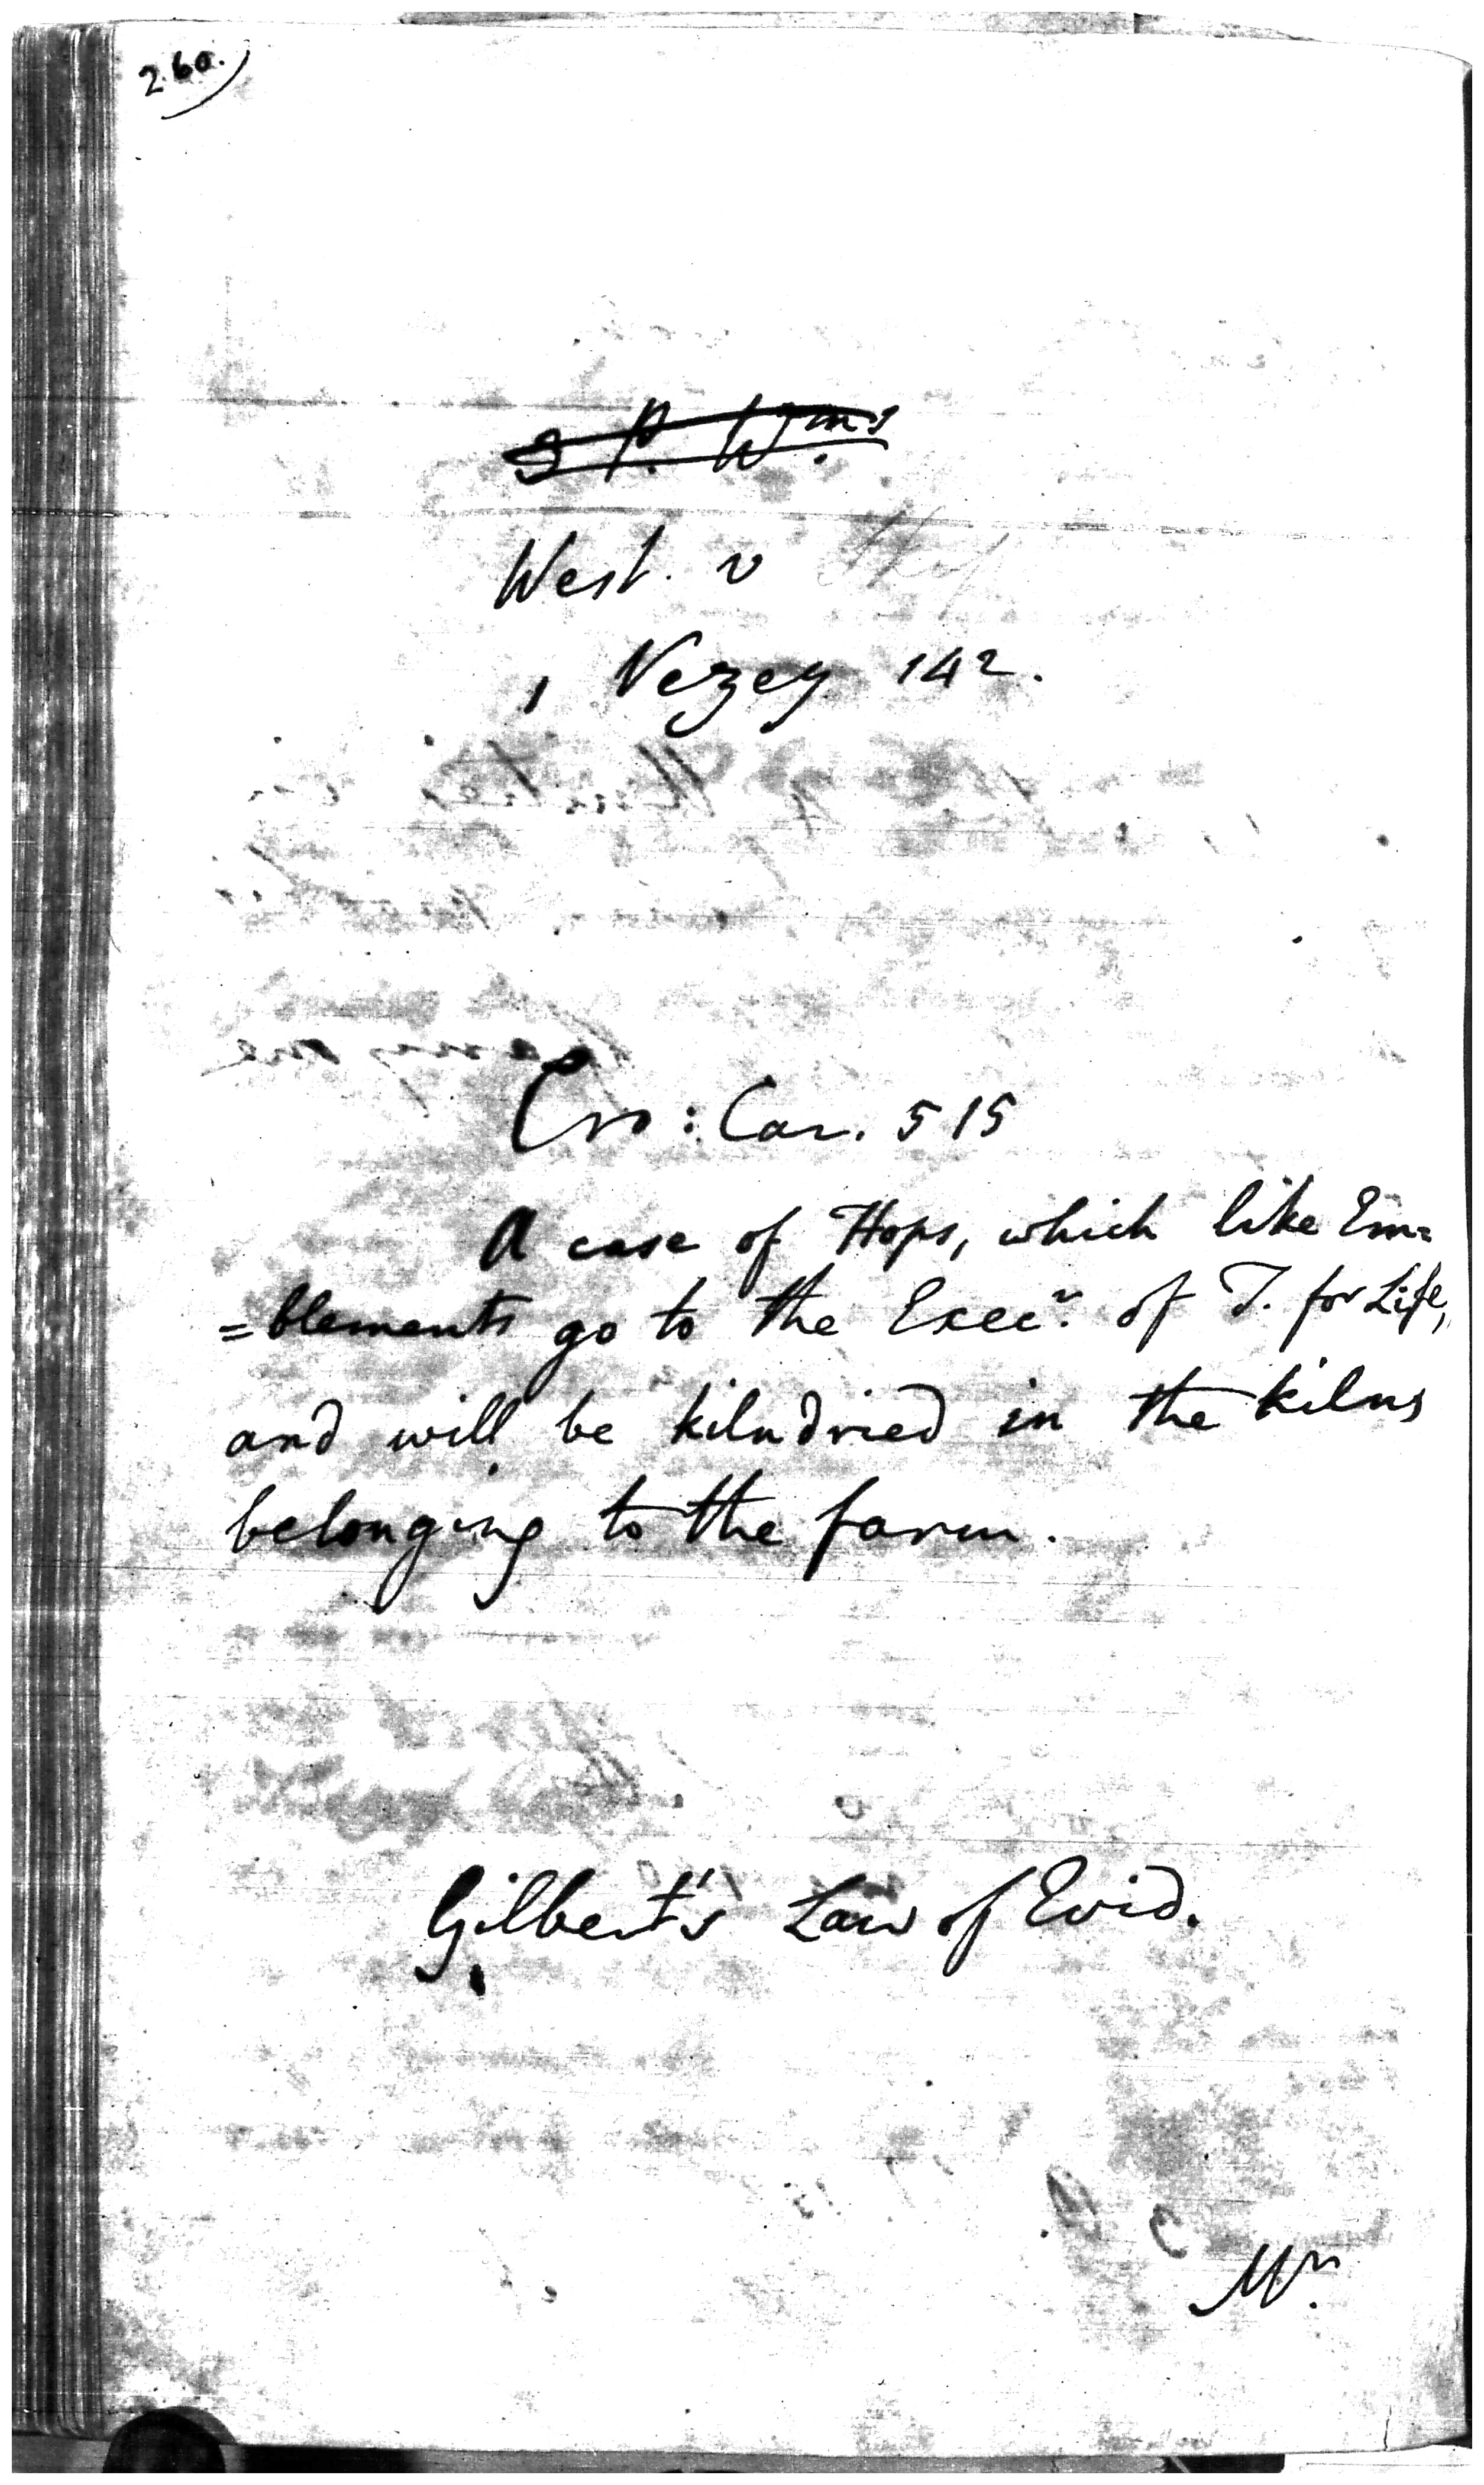 260.)
West. v
1 Vezey 142.
Cro: Car. 515
A case of Hops, which like Em=
=blements go to the Execr. of T. for Life,
and will be kilndried in the kilns
belonging to the farm.
Gilbert's Law of Evid.
Mr.